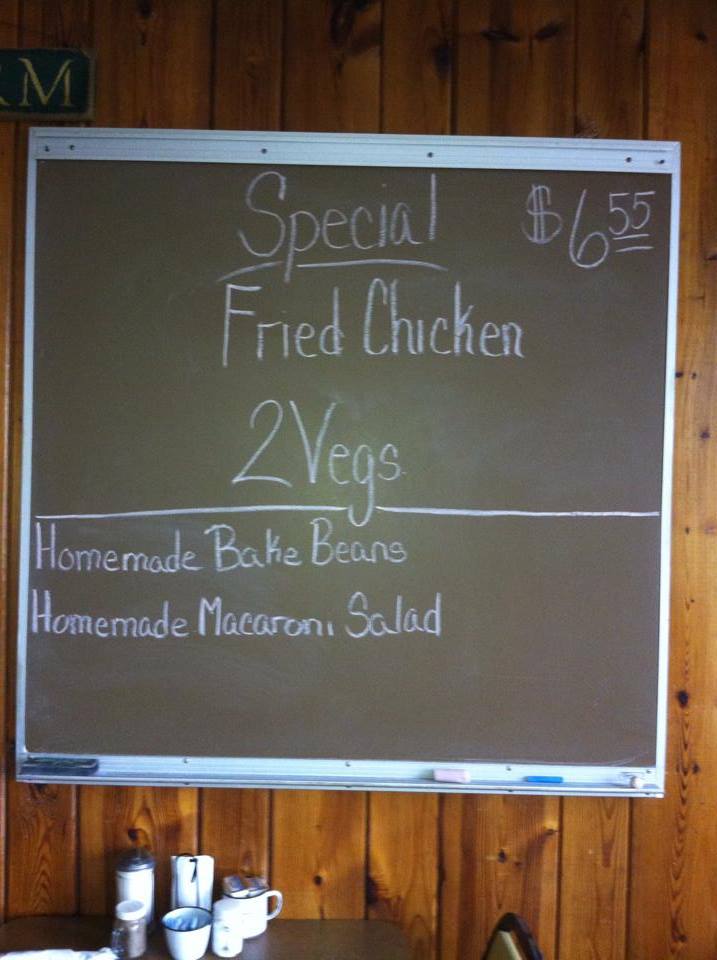 RM
Special $6 55
Fried Chicken
2 Vegs
Homemade Bake Beans
Homemade Macaroni Salad